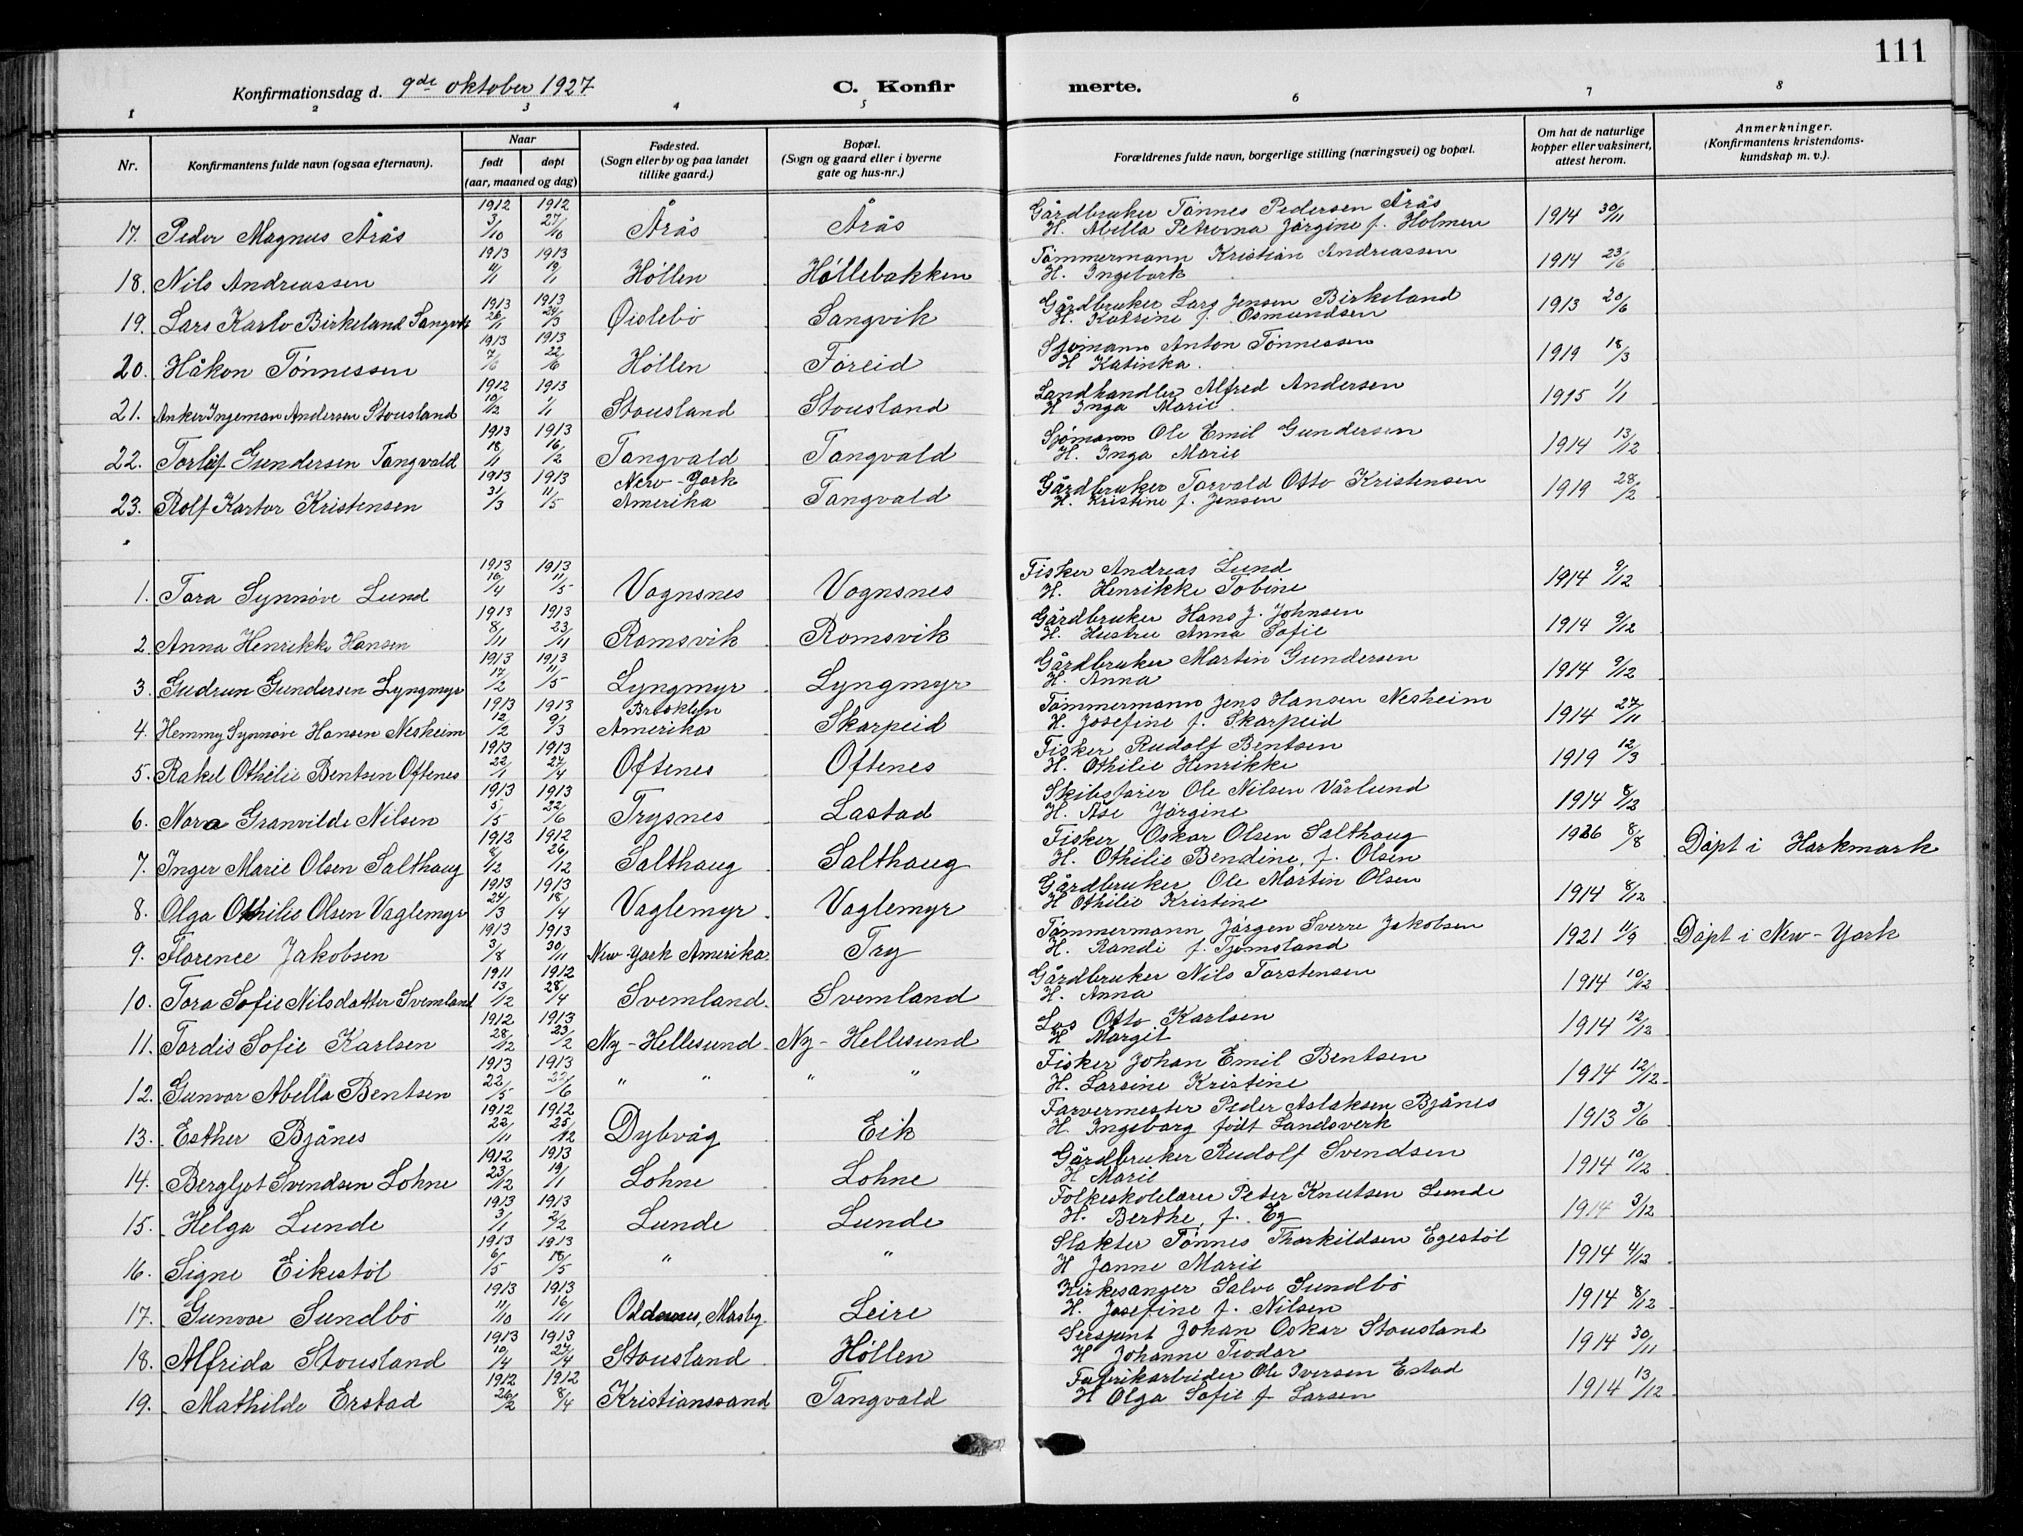 111
Konfirmationsdag d. 9de oktober 1927 C. Konfirmerte.
1 2 3 4 5 6 7 8
Nr. Konfirmantens fulde navn (ogsaa efternavn). Naar født døpt (aar, maaned og dag) Fødested. (Sogn eller by og paa landet tillike gaard.) Bopæl. (Sogn og gaard eller i byerne gate og hus-nr.) Forældrenes fulde navn, borgerlige stilling (næringsvei) og bopæl. Om hat de naturlige kopper eller vaksinert, attest herom. Anmerkninger. (Konfirmantens kristendomskundskap m. v.).
17. Peder Magnus Årås 1912 3/10 1912 27/10 Årås Årås Gårdbruker Tønnes Pedersen Årås H. Abella Petrovna Jørgine f. Holmen 1914 30/11
18. Nils Andreassen 1913 1913 19/1 Höllen Höllebakken Tømmermann Kristian Andreassen H. Ingebork 1914 23/6
19. Lars Karlo Birkeland Sangvik 1913 26/1 1913 24/3 Øislebö Sangvik Gårdbruker Lars Jensen Birkeland H. Katrine f. Osmundsen 1913 20/6
20. Håkon Tönnessen 1913 1913 22/6 Höllen Föreid Sjömann Anton Tönnessen H Katinka. 1919 18/3
21. Anker Ingeman Andersen Stousland 1912 10/12 1913 1/1 Stousland Stousland Landhandler Alfred Andersen H Inga Marie. 1915 1/1
22. Torlúf Gundersen Tangvald 1913 18/1 1913 16/2 Tangvald Tangvald Sjömann Ole Emil Gundersen H. Inga Marie 1914 13/12
23. Rolf Kartor Kristensen 1913 31/3 1913 11/5 New-York Amerika Tangvald Gårdbruker Torvald Otto Kristensen H. Kristine f. Jensen 1919 28/2
1. Tora Synnöve Lund 1913 16/4 1913 11/5 Vognsnes Vognsnes Fisker Andreas Lund H. Henrikke Tobine 1914 9/12
2. Anna Henrikke Hansen 1913 8/11 1913 23/11 Romsvik Romsvik Gårdbruker Hans J. Johnsen H. Hustru Anna Sofie 1914 9/12
3. Gudrun Gundersen Lyngmyr 1913 17/2 1913 11/5 Lyngmyr Lyngmyr Gårdbruker Martin Gundersen H. Anna 1914 9/12
4. Hemmy Synnöve Hansen Nesheim 1913 12/2 1913 9/3 Brooklyn Amerika Skarpeid Tømmermann Jens Hansen Nesheim H. Josefine f. Skarpeid 1914 27/11
5. Rakel Othilie Bentsen Oftenes 1913 22/1 1913 27/4 Oftenes Oftenes Fisker Rudolf Bentsen H. Othilie Henrikke 1919 12/3
6. Nora Granvilde Nilsen 1913 5/5 1913 22/6 Trysnes Lastad Skibsfører Ole Nilsen Vårlund H. Åse Jörgine 1914 8/12
7. Inger Marie Olsen Salthaug 1912 8/12 1912 26/12 Salthaug Salthaug Fisker Oskar Olsen Salthaug H. Othilie Bendine, f. Olsen 1926 8/8 Döpt i Harkmark
8. Olga Othilie Olsen Vaglemyr 1913 24/3 1913 18/4 Vaglemyr Vaglemyr Gårdbruker Ole Martin Olsen H Othilie Kristine 1914 8/12
9. Florence Jakobsen 1913 3/8 1913 30/11 New-York Amerika. Try Tømmermann Jörgen Sverre Jakobsen H. Randi f. Tjomsland 1921 11/9 Döpt i New-York
10. Tora Sofie Nilsdatter Svemland 1911 13/12 1912 28/4 Svemland Svemland Gårdbruker Nils Torstensen H. Anna 1914 10/12
11. Tordis Sofie Karlsen 1912 28/12 1913 23/2 Ny-Hellesund Ny-Hellesund Los Otto Karlsen H Margit 1914 12/12
12. Gunvor Abella Bentsen 1913 22/5 1913 22/6 " " " " Fisker Johan Emil Bentsen H. Larsine Kristine 1914 12/12
13. Esther Bjånes 1912 22/11 1912 25/12 Dybvåg Eik Farvermester Peder Aslaksen Bjånes H. Ingeborg født Landsverk 1913 3/6
14. Bergljot Svendsen Lohne 1912 23/12 1913 19/1 Lohne Lohne Gårdbruker Rudolf Svendsen H Marie 1914 10/12
15. Helga Lunde 1913 3/1 1913 2/2 Lunde Lunde Folkeskolelærer Peter Knutsen Lunde H. Berthe, f. Eg 1914 3/12
16. Signe Eikestöl 1913 6/5 1913 18/5 " " Slakter Tönnes Thorkildsen Egestöl H Janne Marie 1914 4/12
17. Gunvor Sundbö 1913 11/10 1913 16/11 Oddernes, Mosby. Leire Kirkesanger Salve Sundbö H. Josefine f. Nilsen 1914 8/12
18. Alfrida Stousland 1913 10/4 1913 27/4 Stousland Höllen Sersjant Johan Oskar Stousland H Johanne Tiodor 1914 30/11
19. Mathilde Erstad 1912 26/2 1912 8/4 Kristianssand Tangvald Fabrikarbeider Ole Iversen Estad H Olga Sofie f Larsen 1914 13/12